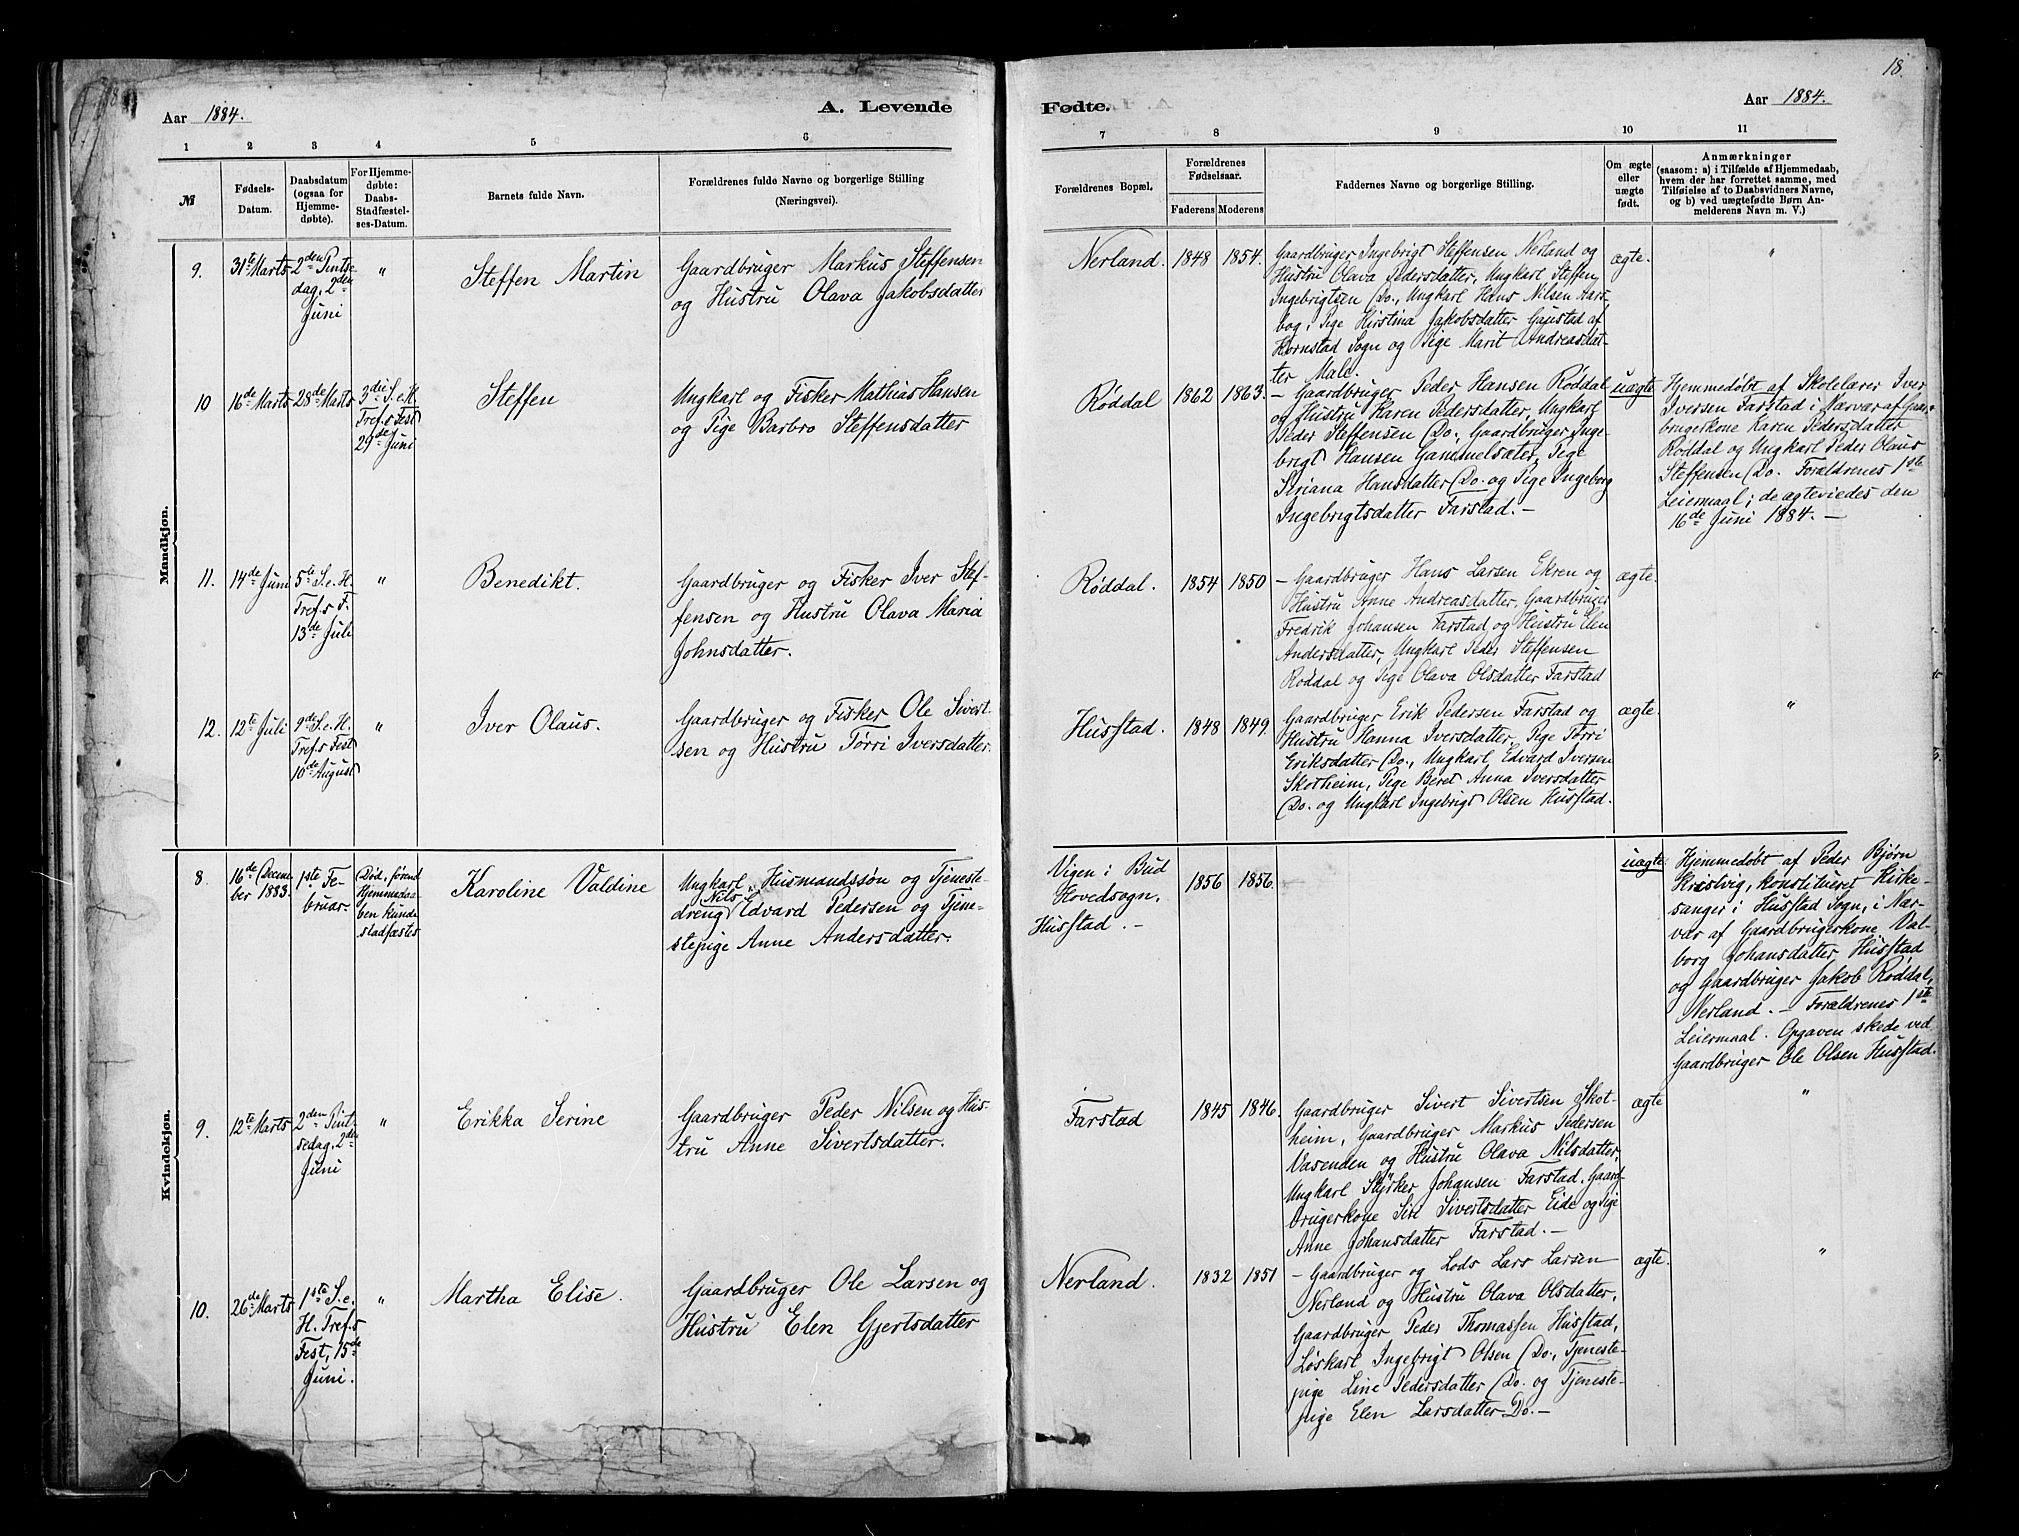 18.
Aar 1884.
A. Levende
Fødte.
Aar 1884.
1 2 3 4 5 6 7 8 9 10 11
№
Fødsels-
Datum.
Daabsdatum
(ogsaa for
Hjemme-
døbte).
For Hjemme-
døbte:
Daabs-
Stadfæstel-
ses-Datum.
Barnets fulde Navn.
Forældrenes fulde Navne og borgerlige Stilling
(Næringsvei).
Forældrenes Bopæl.
Forældrenes
Fødselsaar.
Faderens Moderens
Faddernes Navne og borgerlige Stilling.
Om ægte
eller
uægte
født.
Anmærkninger
(saasom: a) i Tilfælde af Hjemmedaab,
hvem der har forrettet samme, med
Tilføielse af to Daabsvidners Navne,
og b) ved uægtefødte Børn An-
melderens Navn m. V.)
Mandkjøn.
9.
31te Marts
2den Pintse
dag, 2den
Juni
"
Steffen Martin
Gaardbruger Markus Steffensen
og Hustru Olava Jakobsdatter
Nerland.
1848
1854.
Gaardbruger Ingebrigt Steffensen Nerland og
Hustru Olava Pedersdatter, Ungkarl Steffen
Ingebrigtsen Do., Ungkarl Hans Nilsen Aars-
bog, Pige Kirstina Jakobsdatter Gaustad af
Kornstad Sogn og Pige Marit Andreasdat-
ter Male.
ægte.
"
10
16de Marts
28de Marts
3die S. e. H.
Tref.s Fest
29de Juni
Steffen
Ungkarl og Fisker Mathias Hansen
og Pige Barbro Steffensdatter
Røddal
1862
1863.
- Gaardbruger Peder Hansen Røddal
og Hustru Karen Pedersdatter, Ungkarl
Peder Steffensen Do., Gaardbruger Inge-
brigt Hansen Gammelsæter, Pige
Siriana Hansdatter Do. og Pige Ingeborg
Ingebrigtsdatter Farstad. -
uægte
Hjemmedøbt af Skolelærer Iver
Iversen Farstad i Nærvær af Gaard-
brugerkone Karen Pedersdatter
Røddal og Ungkarl Peder Olaus
Steffensen Do. Forældrenes 1ste
Leiermaal; de ægteviedes den
16de Juni 1884. -
11.
14de Juni
5te S. e. H.
Tref.s F.
13de Juli
"
Benedikt.
Gaardbruger og Fisker Iver Stef-
fensen og Hustru Olava Maria
Johnsdatter.
Røddal.
1854
1850
- Gaardbruger Hans Larsen Ekren og
Hustru Anne Andreasdatter, Gaardbruger
Fredrik Johansen Farstad og Hustru Elen
Andersdatter, Ungkarl Peder Steffensen
Røddal og Pige Olava Olsdatter Farstad
ægte.
12.
12te Juli
9de S. e. H.
Tref.s Fest
10de August
"
Iver Olaus.
Gaardbruger og Fisker Ole Sivert-
sen og Hustru Tørri Iversdatter.
Husstad.
1848
1849.
Gaardbruger Erik Pedersen Farstad og
Hustru Hanna Iversdatter, Pige Tørri
Eriksdatter Do., Ungkarl Edvard Iversen
Skotheim, Pige Beret Anna Iversdatter
Do. og Ungkarl Ingebrigt Olsen Husstad.
ægte.
"
Kvindekjøn.
8.
16de Decem-
ber 1883.
1ste Fe-
bruar.
Død, førend
Hjemmedaa-
ben kunde
stadfæstes
Karoline Valdine
Ungkarl, Husmandssøn og Tjeneste-
dreng Nils Edvard Pedersen og Tjene-
stepige Anne Andersdatter.
Vigen i Bud
Hovedsogn.
Husstad. -
1856
1856.
-
uægte
Hjemmedøbt af Peder Bjørn
Kristvig, konstitueret Kirke-
sanger i Husstad Sogn, i Nær-
vær af Gaardbrugerkone Val-
borg Johansdatter Husstad
og Gaardbruger Jakob Røddal,
Nerland. - Forældrenes 1ste
Leiermaal. Opgaven skede ved
Gaardbruger Ole Olsen Husstad.
9.
12te Marts
2den Pint-
sedag, 2den
Juni
"
Erikka Serine
Gaardbruger Peder Nilsen og Hus-
tru Anne Sivertsdatter.
Farstad
1845
1846.
Gaardbruger Sivert Sivertsen Skot-
heim, Gaardbruger Markus Pedersen
Vasenden og Hustru Olava Nilsdatter,
Ungkarl Styrker Johansen Farstad, Gaard-
brugerkone Siri Sivertsdatter Eide og Pige
Anne Johansdatter Farstad. -
ægte
"
10.
26de Marts
1ste S. e.
H. Tref.s
Fest, 15de
Juni.
"
Martha Elise.
Gaardbruger Ole Larsen og
Hustru Elen Gjertsdatter
Nerland.
1832
1851
- Gaardbruger og Lods Lars Larsen
Nerland og Hustru Olava Olsdatter,
Gaardbruger Peder Thomassen Husstad,
Løskarl Ingebrigt Olsen Do., Tjeneste-
pige Line Pedersdatter Do. og Tjeneste-
pige Elen Larsdatter Do. -
ægte.
"